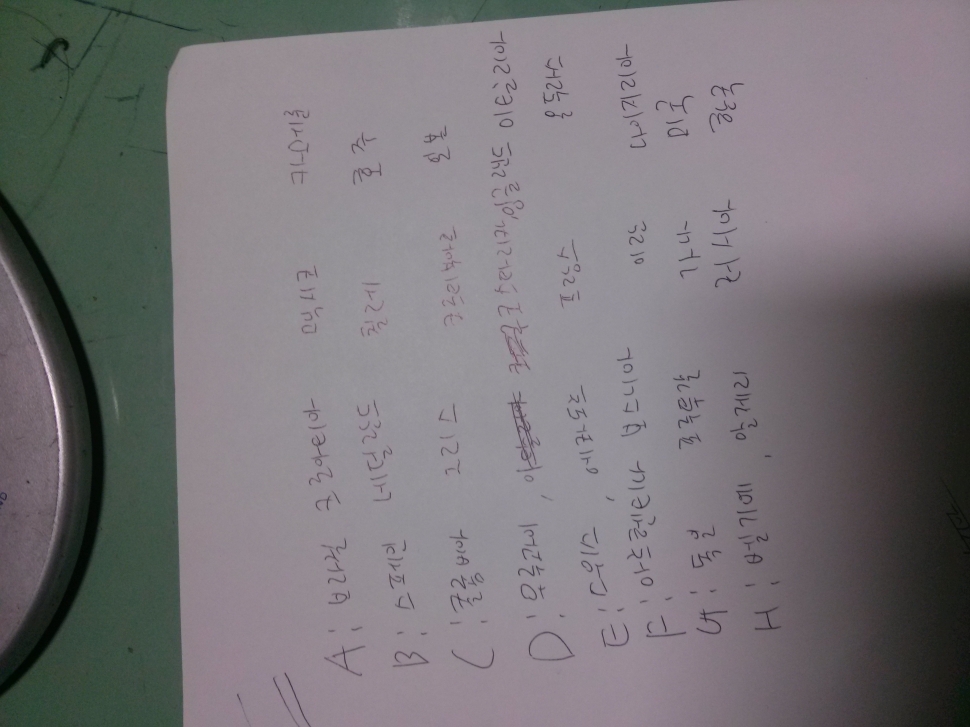 A : 브라질 크로아티아 멕시코 카메룬
B : 스페인 네덜란드 칠레 호주
C : 콜롬비아 그리스 코트디부아르 일본
D : 우루과이, 코스타리카 잉글랜드 이탈리아
E : 스위스, 에콰도르 프랑스 온두라스
F : 아르헨티나 보스니아 이란 나이지리아
G : 독일 포르투갈 가나 미국
H : 벨기에, 알제리 러시아 한국